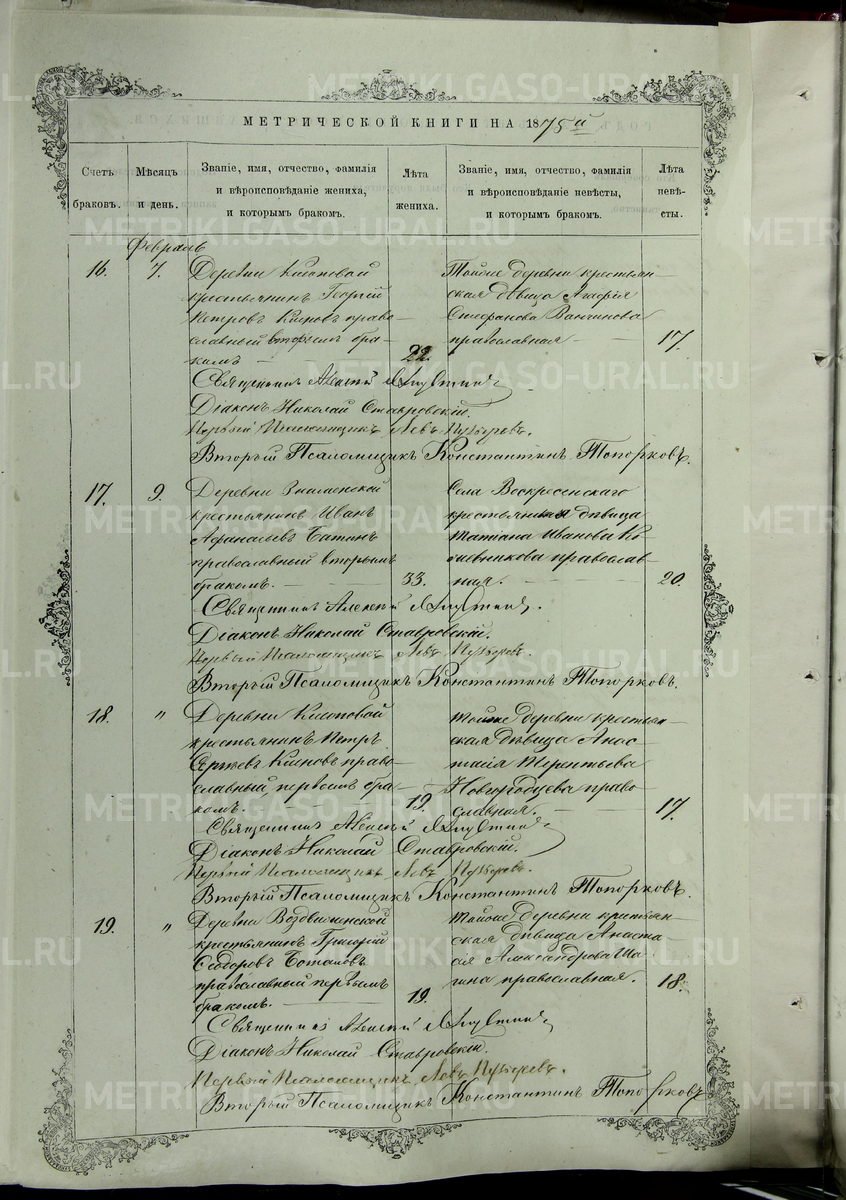 МЕТРИЧЕСКОЙ КНИГИ НА 1875й
Счетъ браковъ.
Мѣсяцъ и день.
Званіе, имя, отчество, фамилія и вѣроисповѣданіе жениха, и которымъ бракомъ.
Лѣта жениха.
Званіе, имя, отчество, фамилія и вѣроисповѣданіе невѣсты, и которымъ бракомъ.
Лѣта невѣсты.
Февраль
16. 7.
Деревни
крестьянинъ Георгій
Петровъ право-
славный вторымъ бра-
комъ 22.
Тойже деревни крестьян-
ская дѣвица Агафія
Стефанова Ванчинова
православная 17.
Священникъ Алексій
Діаконъ Николай Ставровскій.
Первый Псаломщикъ Левъ
Второй Псаломщикъ Константинъ Топорковъ.
17. 9.
Деревни Знаменской
крестьянинъ Иванъ
Афанасьевъ
православный вторымъ
бракомъ. 33.
Села Воскресенскаго
крестьянская дѣвица
Татіана Иванова Ко-
жевникова православ-
ная. 20.
Священникъ Алексій
Діаконъ Николай Ставровскій.
Первый Псаломщикъ Левъ
Второй Псаломщикъ Константинъ Топорковъ.
18. "
Деревни
крестьянинъ Петръ
право-
славный, первымъ бра-
комъ. 19.
Тойже деревни крестьян-
ская дѣвица Анас-
тасія Терентьева
Новогородцева право-
славная. 17.
Священникъ Алексій
Діаконъ Николай Ставровскій.
Первый Псаломщикъ Левъ
Второй Псаломщикъ Константинъ Топорковъ.
19. "
Деревни Воздвиженской
крестьянинъ Григорій
Ѳедоровъ
православный первымъ
бракомъ. 19.
Тойже деревни крестьян-
ская дѣвица Анаста-
ія Александрова
православная. 18.
Священникъ Алексій
Діаконъ Николай Ставровскій.
Первый Псаломщикъ Левъ
Второй Псаломщикъ Константинъ Топорковъ
METRIKI.GASO-URAL.RU